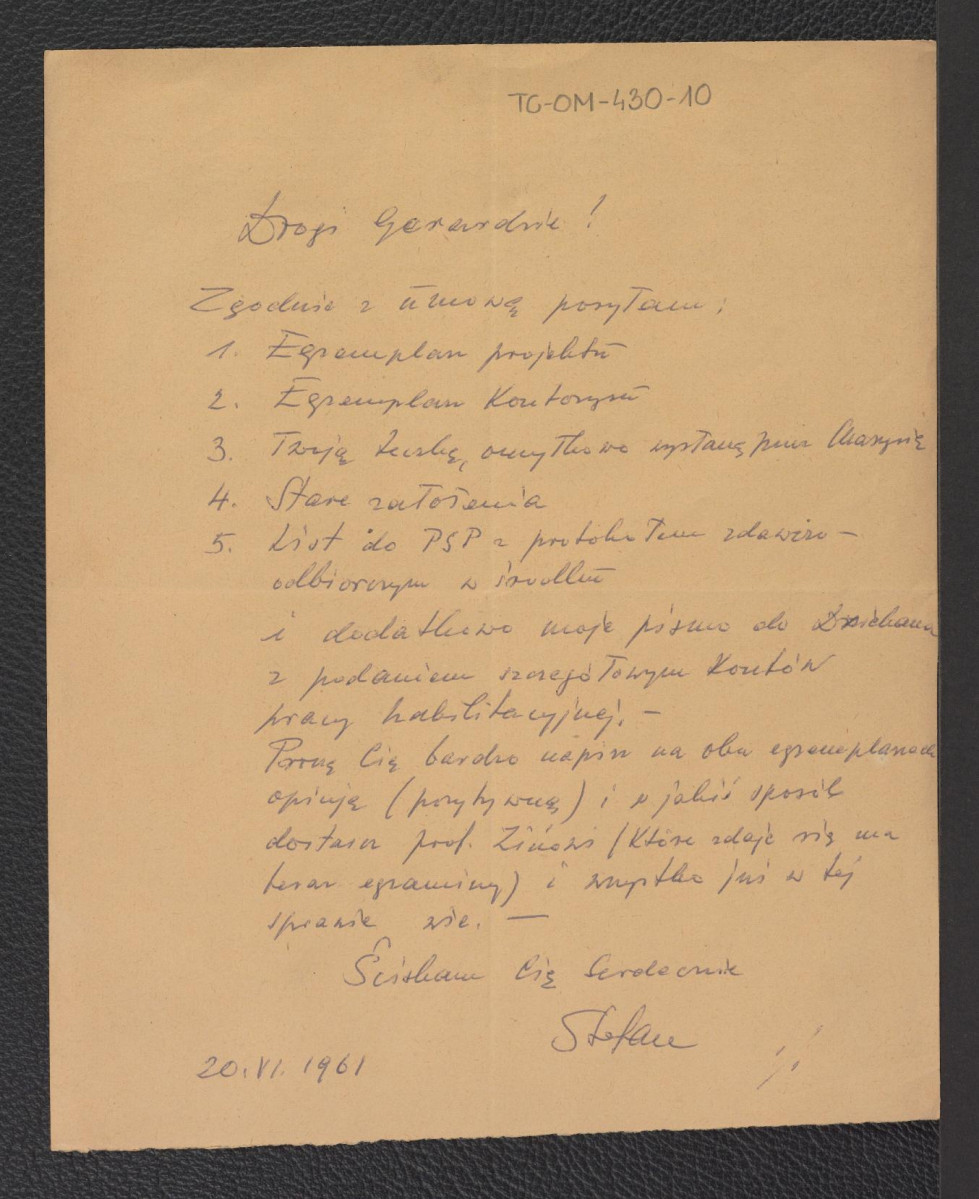 TG-OM-430-10
Drogi Gerardzie!
Zgodnie z umową posyłam:
1. Egzemplarz projektu
2. Egzemplarz Kontorysu
3. Twoją teczkę, omyłkowo wysłaną przez Marysię
4. Stare założenia
5. List do PSP z protokołem zdawczo-
odbiorczym w środku
i dodatkowo moje pismo do Dziekana
z podaniem szczegółowym Kosztów
pracy habilitacyjnej. —
Proszę Cię bardzo napisz na obu egzemplarzach
opinię (pozytywną) i w jakiś sposób
dostarcz prof. (Które zdaje się ma
teraz egzaminy) i wszystko już w tej
sprawie wie. —
Ściskam Cię Serdecznie
Stefan
20.VI.1961